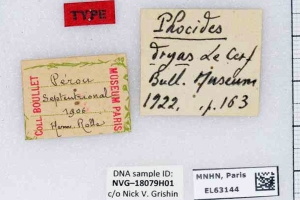 TYPE
COLL. BOULLET
Pérou
Septentrional
1906
Herm. Rolle
MUSEUM PARIS
Phocides
dryas Le Cerf
Bull. Museum
1922, p. 163
DNA sample ID:
NVG–18079H01
c/o Nick V. Grishin
MNHN, Paris
EL63144